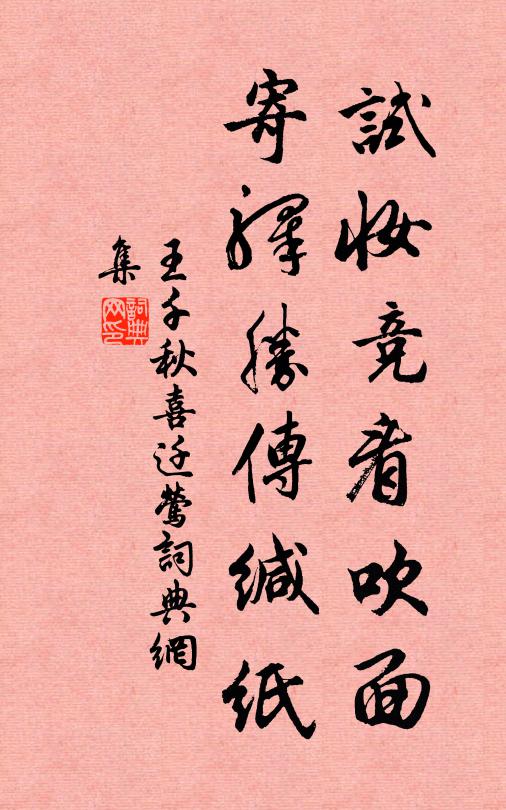 試妝竞看吹面
寄驛勝傳緘紙
王千秋喜迁鶯詞典網
集
詞典
网印